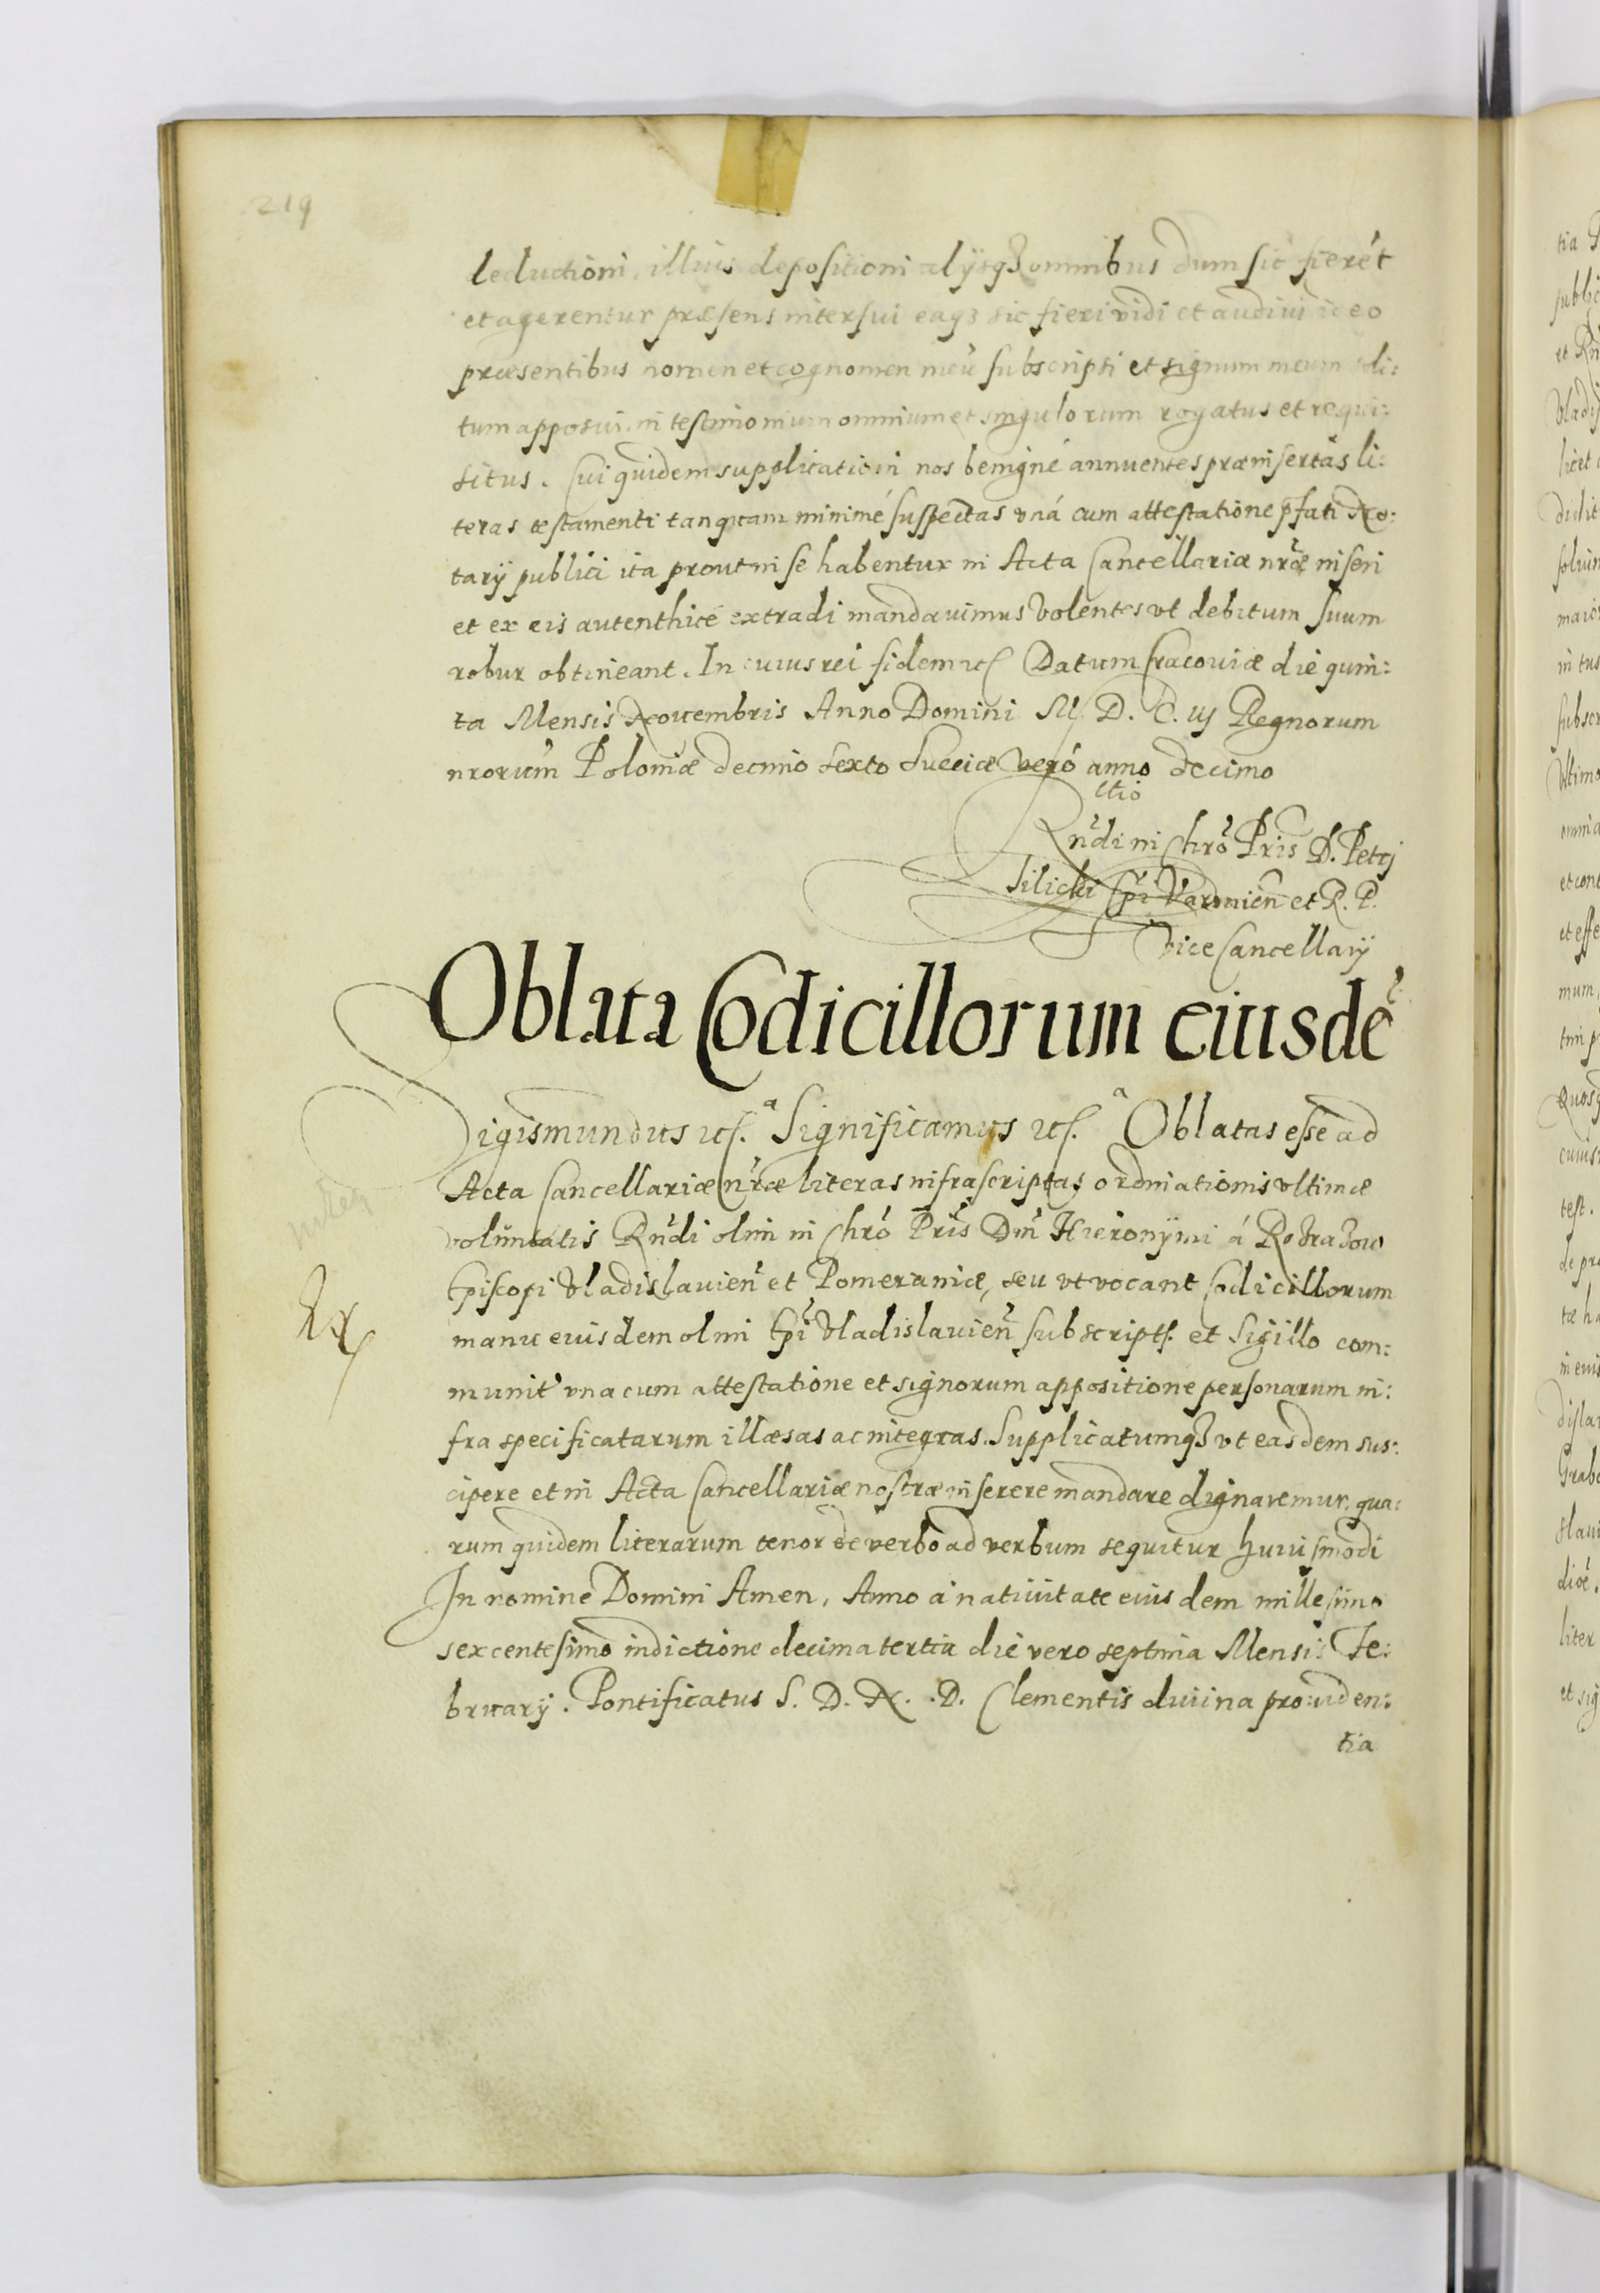 219
leductioni, illius depositioni alijsqȝ omnibus dum sic fierẽt
et agerentur præsens interfui eaqȝ sic fieri vidi et audiui ideo
præsentibus nomen et cognomen meũ subscripsi et signum meum soli:
tum apposui in testimonium omnium et singulorum rogatus et requi:
situs. Cui quidem supplicationi nos benigné annuentes præinsertas li:
teras testamenti tanquam minimé suspectas vná cum attestatione pfati No:
tarij publici ita prout in se habentur in Acta Cancellariæ nræ inseri
et ex eis autenthicé extradi mandauimus Volentes vt debitum suum
robur obtineant. In cuius rei fidem etc Datum Cracouiæ die quin:
ta Mensis Nouembris Anno Domini M. D. C. iij Regnorum
nrorum Poloniæ decimo sexto Sueciæ veró anno decimo
Rndi in Chro Pris D. Petrj
Tilicki Epi Varmien et R. P.
Vice Cancellarij
Oblata Codicillorum eiusdẽ
Sigismundus etc. Significamus etc. Oblatas esse ad
Acta Cancellariæ nræ literas infrascriptas ordinationis vltimæ
voluntatis Rndi olim in Chro Pris Dni Hieronymi á Rozrazow
Episcopi Vladislauien et Pomeraniæ, seu vt vocant Codicillorum
manu eiusdem olim Epi Vladislauien subscript. et Sigillo com:
munit vna cum attestatione et signorum appositione personarum in:
fra specificatarum illæsas ac integras. Supplicatumqȝ vt easdem sus:
cipere et in Acta Cancellariæ nostræ inserere mandare dignaremur, qua:
rum quidem literarum tenor de verbo ad verbum sequitur huiusmodi
In nomine Domini Amen, Anno á natiuitate eiusdem millesimo
sexcentesimo indictione decima tertia die vero septima Mensis Fe:
bruarij. Pontificatus S. D. N. D. Clementis diuina prouiden:
tia